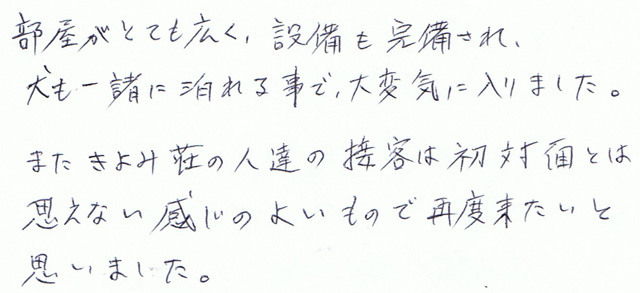 部屋がとても広く、設備も完備され、
犬も一諸に泊れる事で、大変気に入りました。
またきよみ荘の人達の接客は初対面とは
思えない感じのよいもので再度来たいと
思いました。